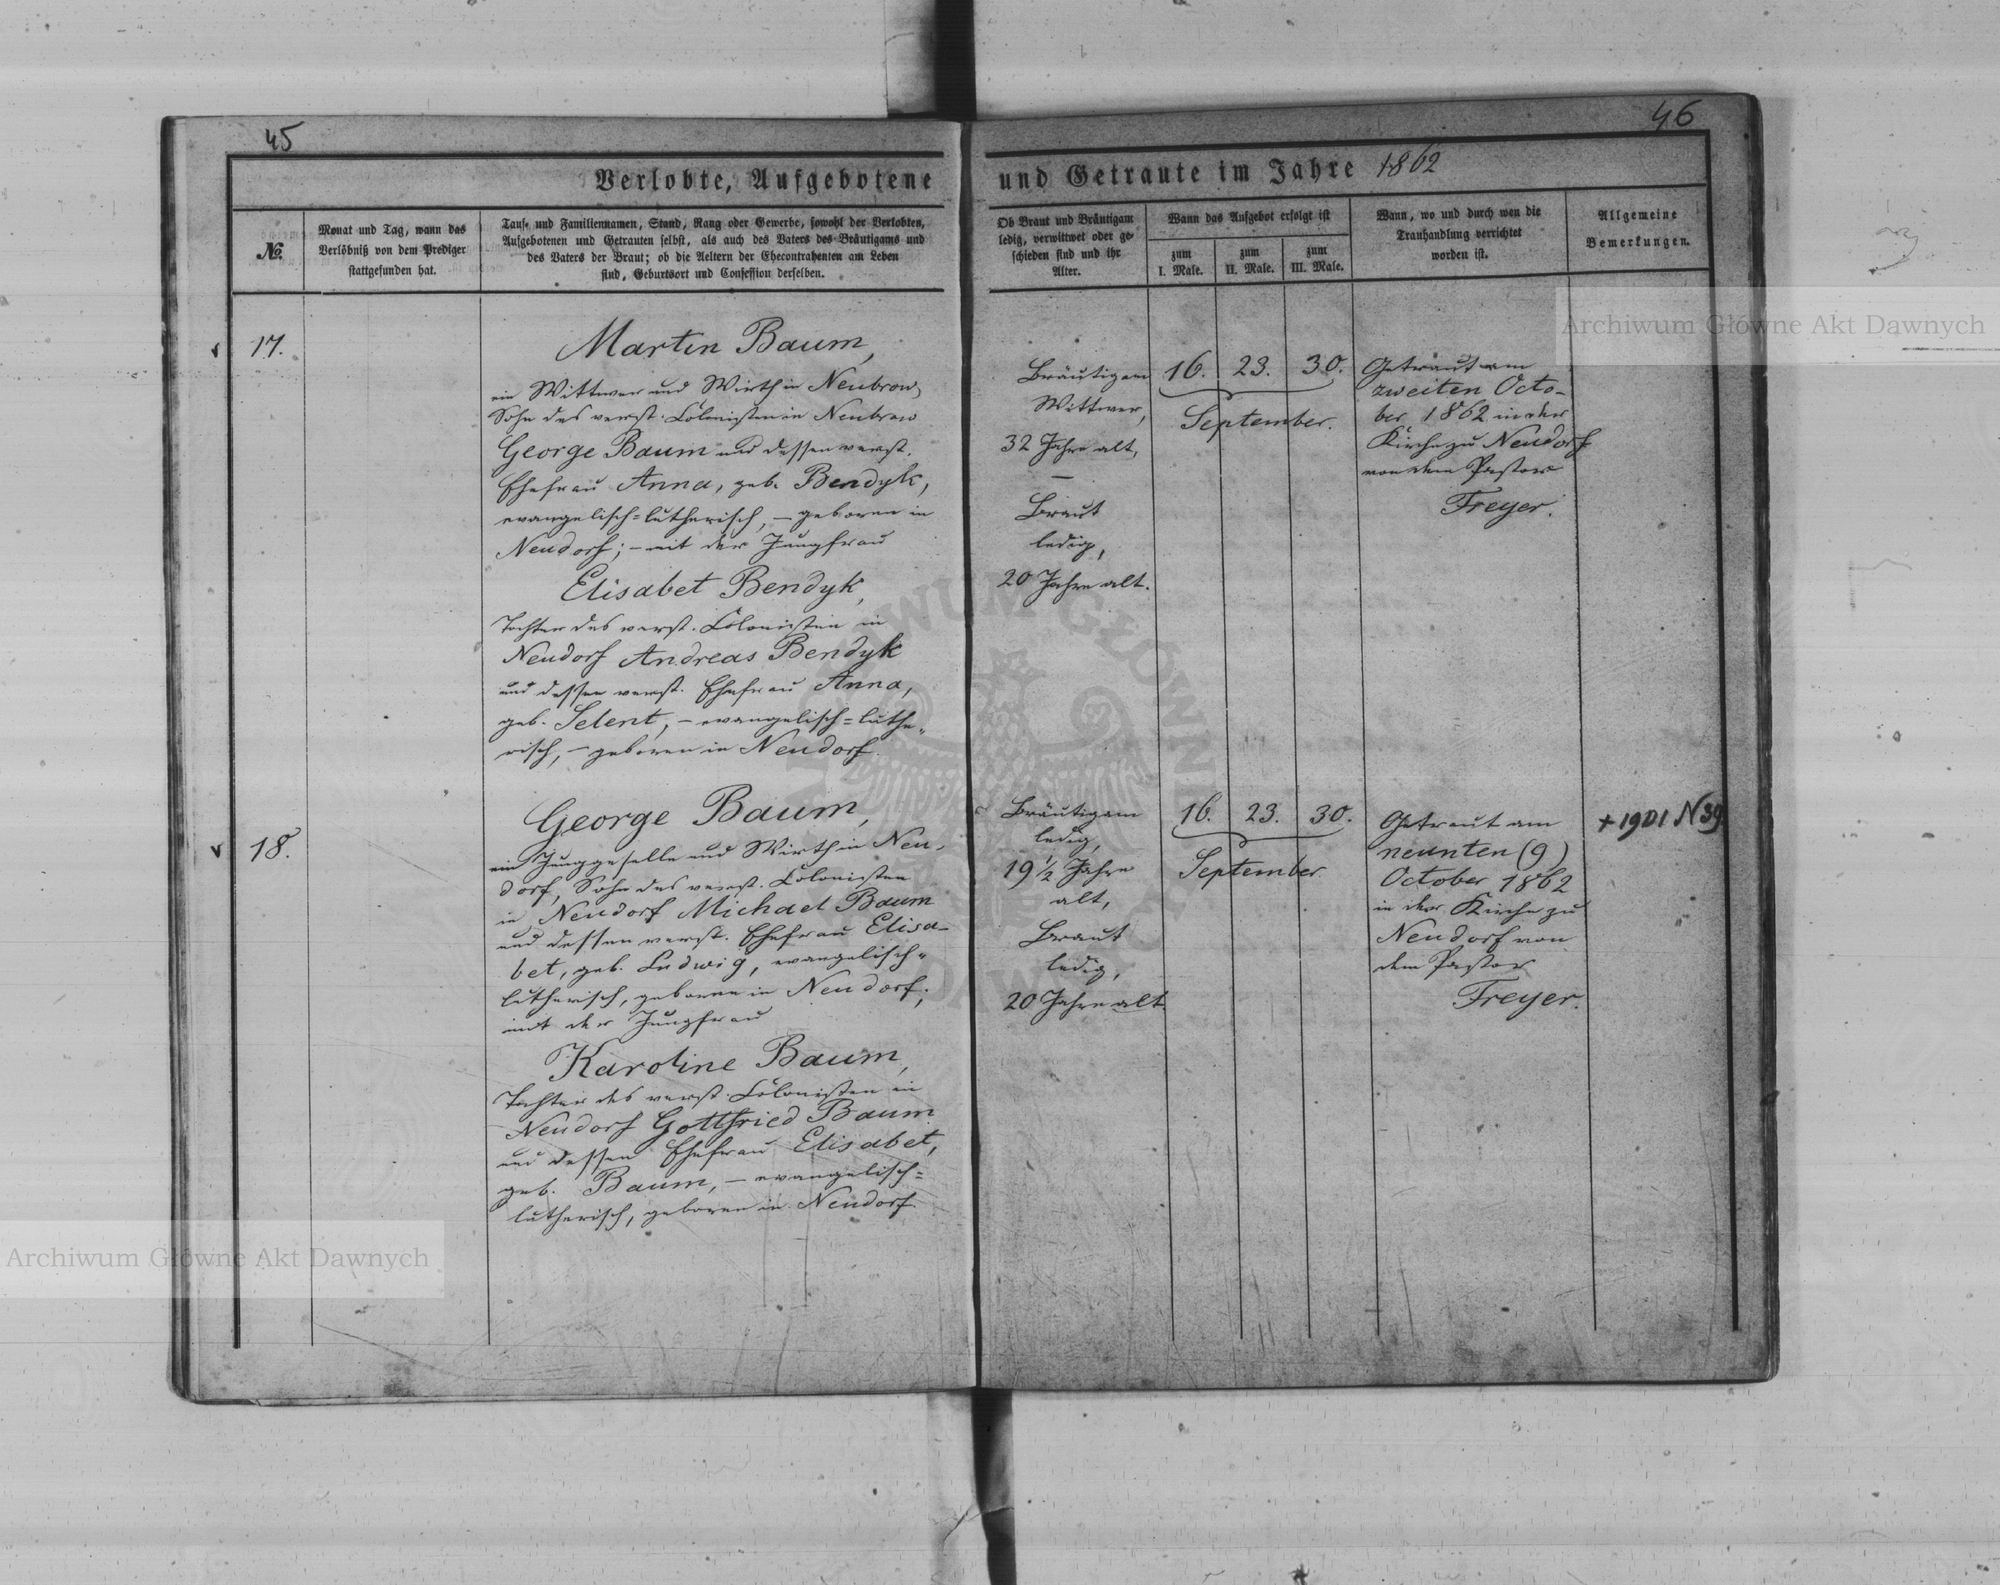 45
46
Verlobte, Aufgebotene und Getraute im Jahre 1862
No.
Monat und Tag, wann das
Verlöbniß von dem Prediger
stattgefunden hat.
Tauf- und Familiennamen, Stand, Rang oder Gewerbe, sowohl der Verlobten,
Aufgebotenen und Getrauten selbst, als auch des Vaters des Bräutigams und
des Vaters der Braut; ob die Aeltern der Ehecontrahenten am Leben
sind, Geburtsort und Confession derselben.
Ob Braut und Bräutigam
ledig, verwittwet oder ge-
schieden sind und ihr
Alter.
Wann das Aufgebot erfolgt ist
zum
I. Male.
zum
II. Male.
zum
III. Male.
Wann, wo und durch wen die
Trauhandlung verrichtet
worden ist.
Allgemeine
Bemerkungen.
17.
Martin Baum,
ein Wittwer und Wirth in Neubrow,
Sohn des verst. Colonisten in Neubrow
George Baum und dessen verst.
Ehefrau Anna, geb. Bendyk,
evangelisch=lutherisch, – geboren in
Neudorf; – mit der Jungfrau
Elisabet Bendyk,
Tochter des verst. Colonisten in
Neudorf Andreas Bendyk
und dessen verst. Ehefrau Anna,
geb. Selent, – evangelisch=luthe-
risch, – geboren in Neudorf.
Bräutigam
Wittwer,
32 Jahre alt,
—
Braut
ledig,
20 Jahre alt.
16. 23. 30.
September.
Getraut am
zweiten Octo-
ber 1862 in der
Kirche zu Neudorf
von dem Pastor
Freyer.
18.
George Baum,
ein Junggeselle und Wirth in Neu-
dorf, Sohn des verst. Colonisten
in Neudorf Michael Baum
und dessen verst. Ehefrau Elisa-
bet, geb. Ludwig, evangelisch-
lutherisch, geboren in Neudorf;
mit der Jungfrau
Karoline Baum,
Tochter des verst. Colonisten in
Neudorf Gottfried Baum
und dessen Ehefrau Elisabet,
geb. Baum, – evangelisch=
lutherisch, geboren in Neudorf.
Bräutigam
ledig,
19 1/2 Jahre
alt,
Braut
ledig,
20 Jahre alt.
16. 23. 30.
September
Getraut am
neunten (9)
October 1862
in der Kirche zu
Neudorf von
dem Pastor
Freyer.
+ 1901 N 39
Archiwum Główne Akt Dawnych
Archiwum Główne Akt Dawnych